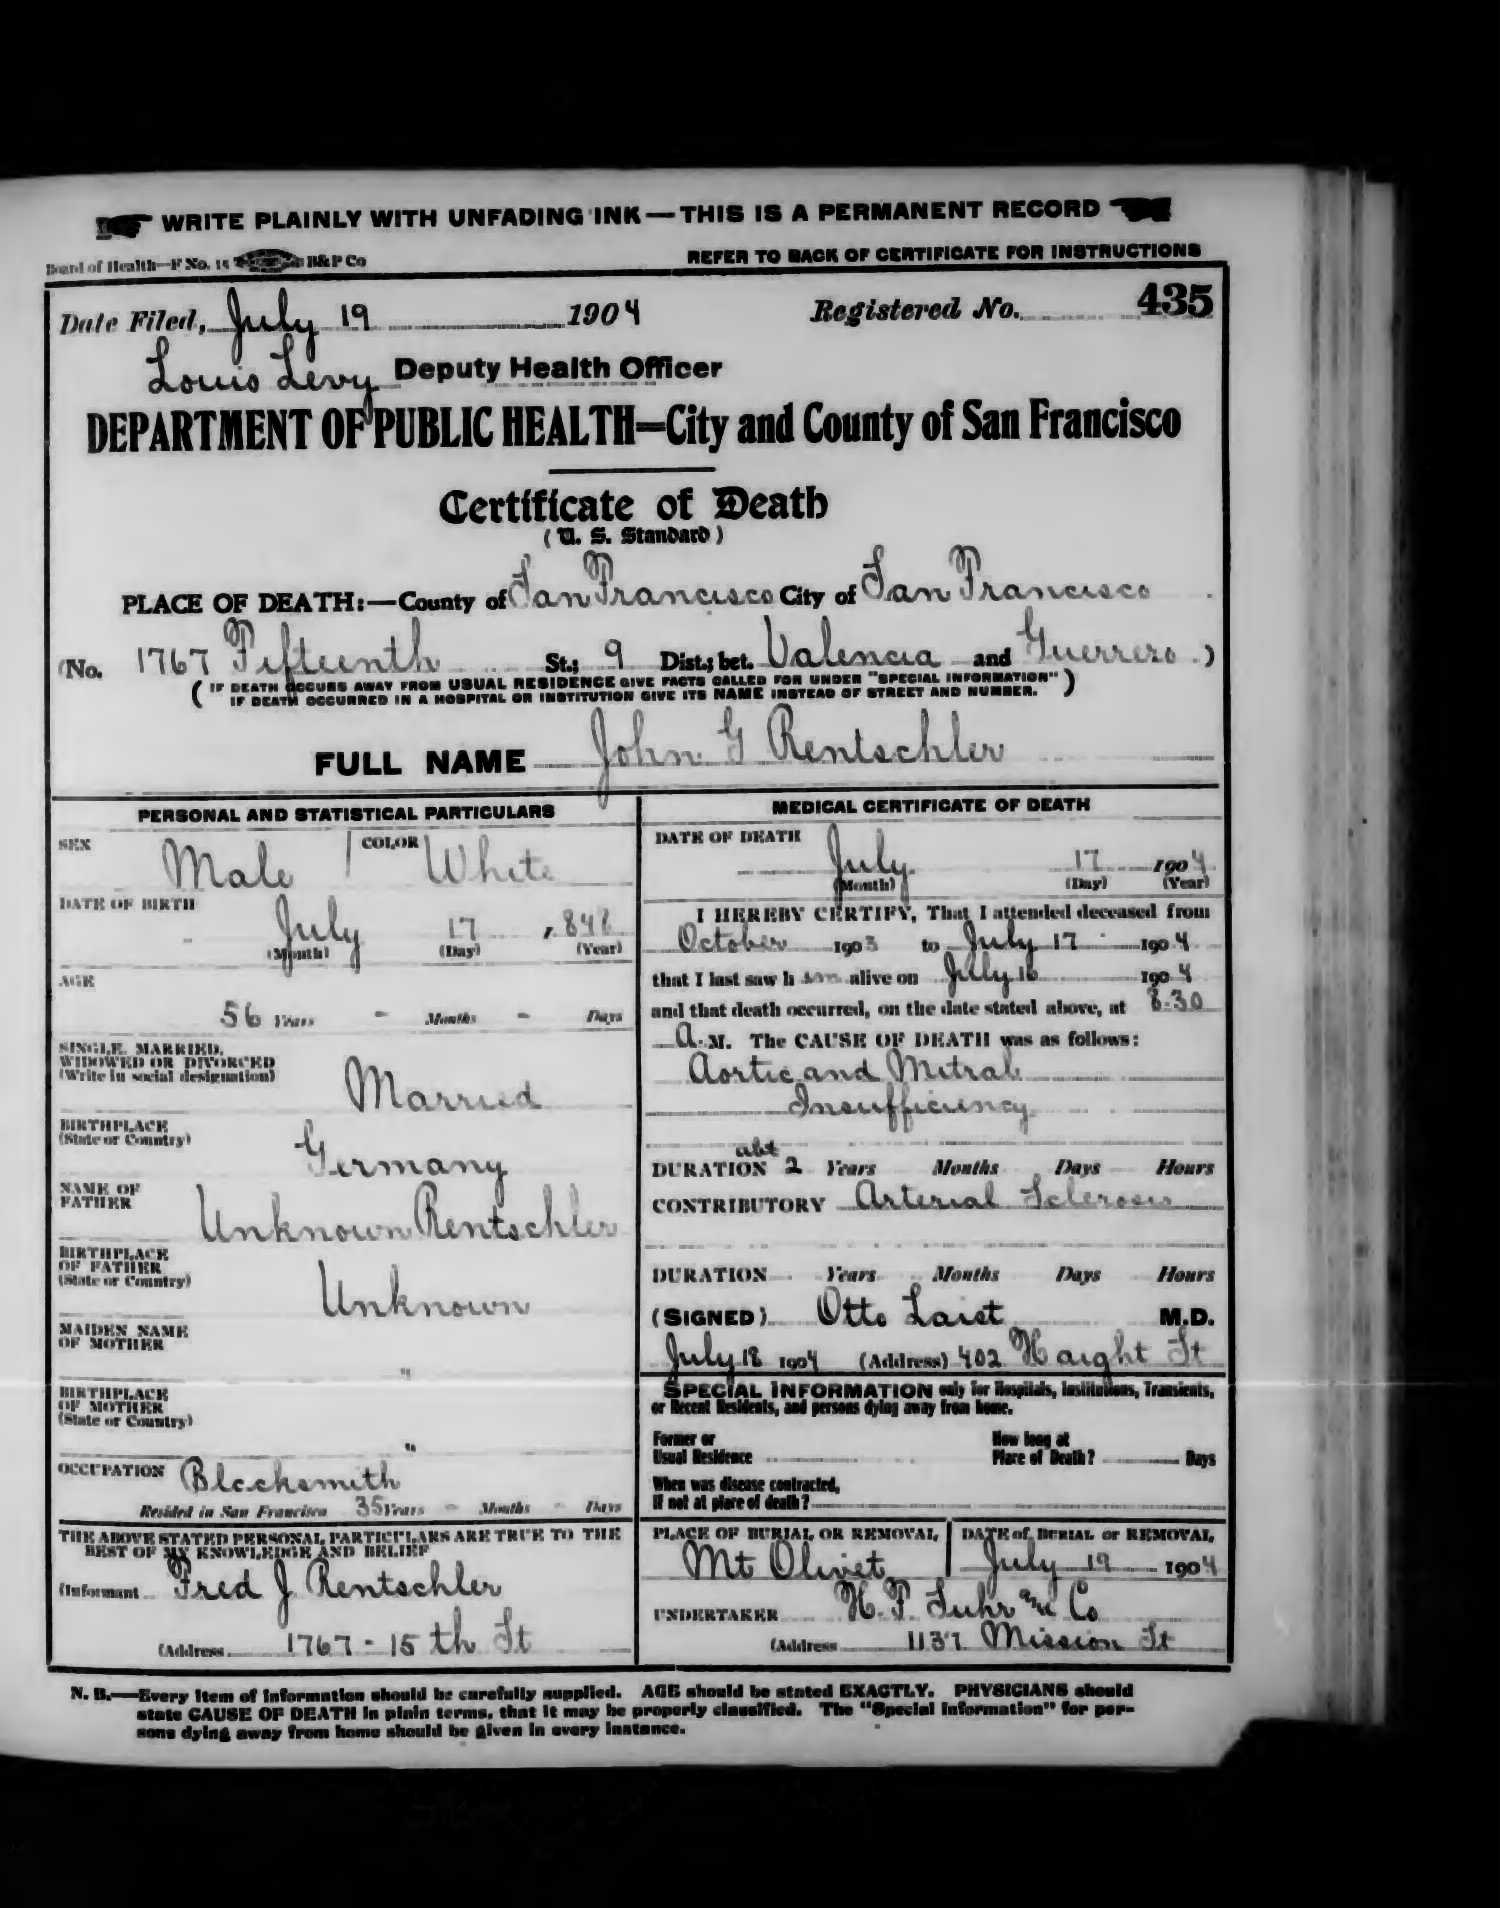 WRITE PLAINLY WITH UNFADING INK—THIS IS A PERMANENT RECORD
Board of Health—F No. 15 B&P Co
REFER TO BACK OF CERTIFICATE FOR INSTRUCTIONS
Date Filed, July 19 1904
Registered No. 435
Louis Levy Deputy Health Officer
DEPARTMENT OF PUBLIC HEALTH—City and County of San Francisco
Certificate of Death
(U. S. Standard)
PLACE OF DEATH:—County of San Francisco City of San Francisco
(No. 1767 Fifteenth St.; 9 Dist.; bet. Valencia and Guerrero )
( IF DEATH OCCURS AWAY FROM USUAL RESIDENCE GIVE FACTS CALLED FOR UNDER "SPECIAL INFORMATION" )
IF DEATH OCCURRED IN A HOSPITAL OR INSTITUTION GIVE ITS NAME INSTEAD OF STREET AND NUMBER.
FULL NAME John G Rentschler
PERSONAL AND STATISTICAL PARTICULARS
SEX Male
COLOR White
DATE OF BIRTH
July 17 , 848
(Month) (Day) (Year)
AGE
56 Years - Months - Days
SINGLE, MARRIED,
WIDOWED OR DIVORCED
(Write in social designation)
Married
BIRTHPLACE
(State or Country)
Germany
NAME OF
FATHER
Unknown Rentschler
BIRTHPLACE
OF FATHER
(State or Country)
Unknown
MAIDEN NAME
OF MOTHER
"
BIRTHPLACE
OF MOTHER
(State or Country)
"
OCCUPATION Blacksmith
Resided in San Francisco 35 Years - Months - Days
THE ABOVE STATED PERSONAL PARTICULARS ARE TRUE TO THE
BEST OF MY KNOWLEDGE AND BELIEF
(Informant Fred J Rentschler
(Address 1767 - 15th St
MEDICAL CERTIFICATE OF DEATH
DATE OF DEATH
July 17 1904
(Month) (Day) (Year)
I HEREBY CERTIFY, That I attended deceased from
October 1903 to July 17 1904
that I last saw h im alive on July 16 1904
and that death occurred, on the date stated above, at 8.30
A. M. The CAUSE OF DEATH was as follows:
Aortic and Mitral
Insufficiency
abt
DURATION 2 Years Months Days Hours
CONTRIBUTORY Arterial Sclerosis
DURATION Years Months Days Hours
(SIGNED) Otto Laist M.D.
July 18 1904 (Address) 402 Haight St
SPECIAL INFORMATION only for Hospitals, Institutions, Transients,
or Recent Residents, and persons dying away from home.
Former or
Usual Residence
How long at
Place of Death? Days
When was disease contracted,
If not at place of death?
PLACE OF BURIAL OR REMOVAL,
Mt Olivet
DATE of BURIAL or REMOVAL,
July 19 1904
UNDERTAKER H. F. Suhr and Co
(Address 1137 Mission St
N. B.—Every item of information should be carefully supplied. AGE should be stated EXACTLY. PHYSICIANS should
state CAUSE OF DEATH in plain terms, that it may be properly classified. The "Special Information" for per-
sons dying away from home should be given in every instance.